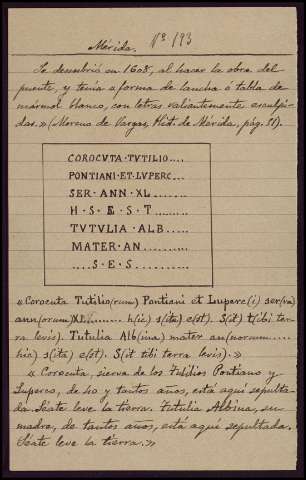 Mérida. Nº 193
Se descubrió en 1608, al hacer la obra del
puente, y tenía a forma de lancha ó tabla de
mármol blanco, con letras valientemente esculpi-
das.» (Moreno de Vargas, Hist. de Mérida, pág. 51).
COROCUTA·TUTILIO....
PONTIANI·ET·LUPERC...
SER·ANN·XL.......
H·S·E·S·T.........
TUTULIA·ALB.....
MATER·AN.........
....S·E·S..........
«Corocuta Tutilio(rum) Pontiani et Luperc(i) ser(va)
ann(orum) XL...... h(ic) s(ita) e(st). S(it) t(ibi ter
ra levis). Tutulia Alb(ina) mater an(norum.....
hic) s(ita) e(st). S(it tibi terra levis).»
«Corocuta, sierva de los Tutilios Pontiano y
Luperco, de 40 y tantos años, está aquí sepulta-
da. Séate leve la tierra. Tutulia Albina, su
madre, de tantos años, está aquí sepultada.
Séate leve la tierra.»